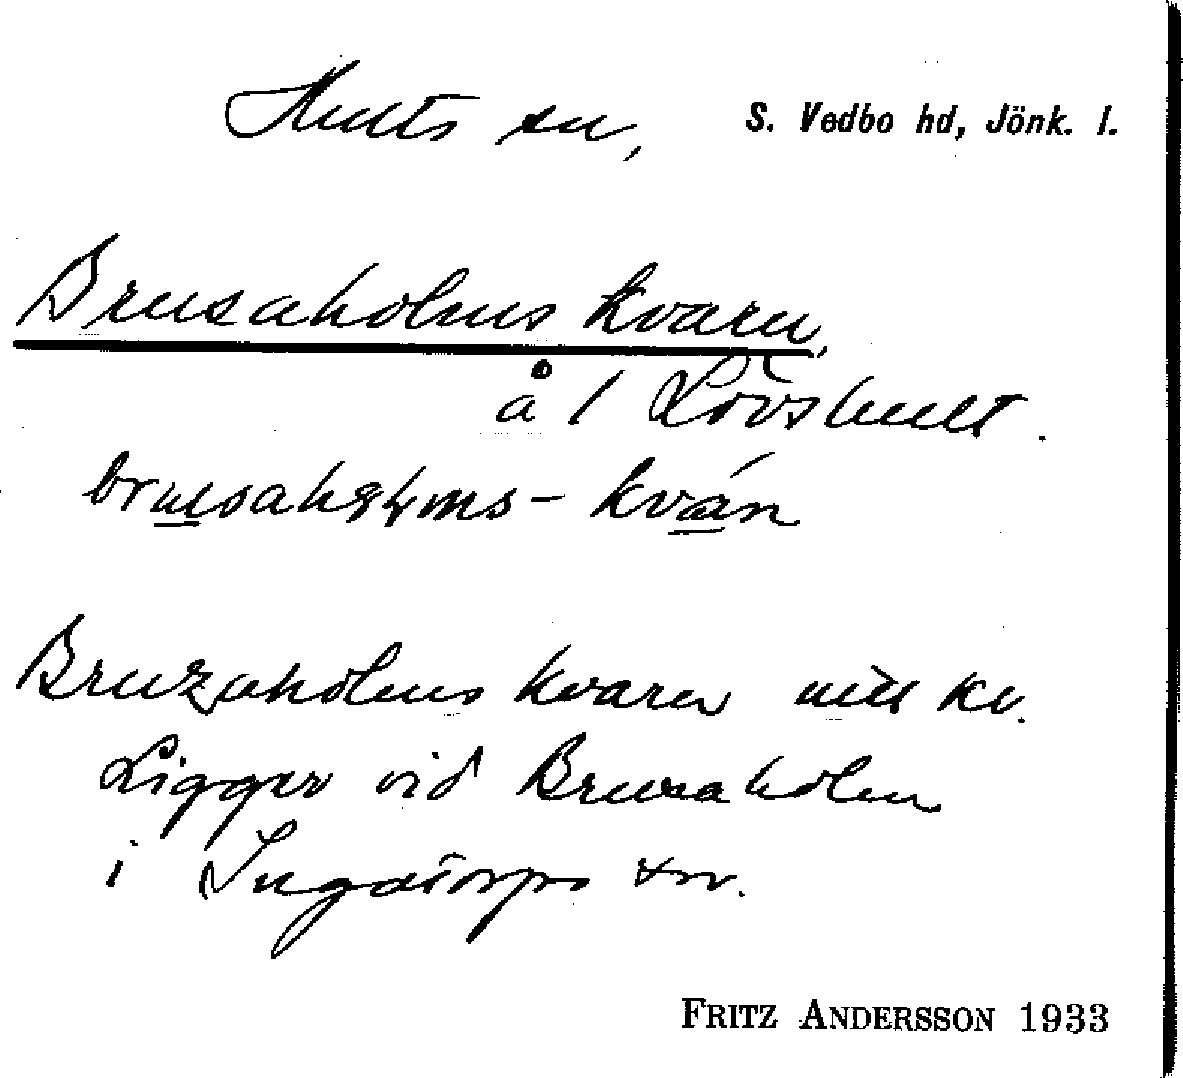 Hults sn, S. Vedbo hd, Jönk. l.
Brusaholms kvarn,
å 1 Lövshult.
brusahɷɭms - kván
Bruzaholms kvarn utt kv.
Ligger vid Brusaholm
i Ingatorps sn.
FRITZ ANDERSSON 1933